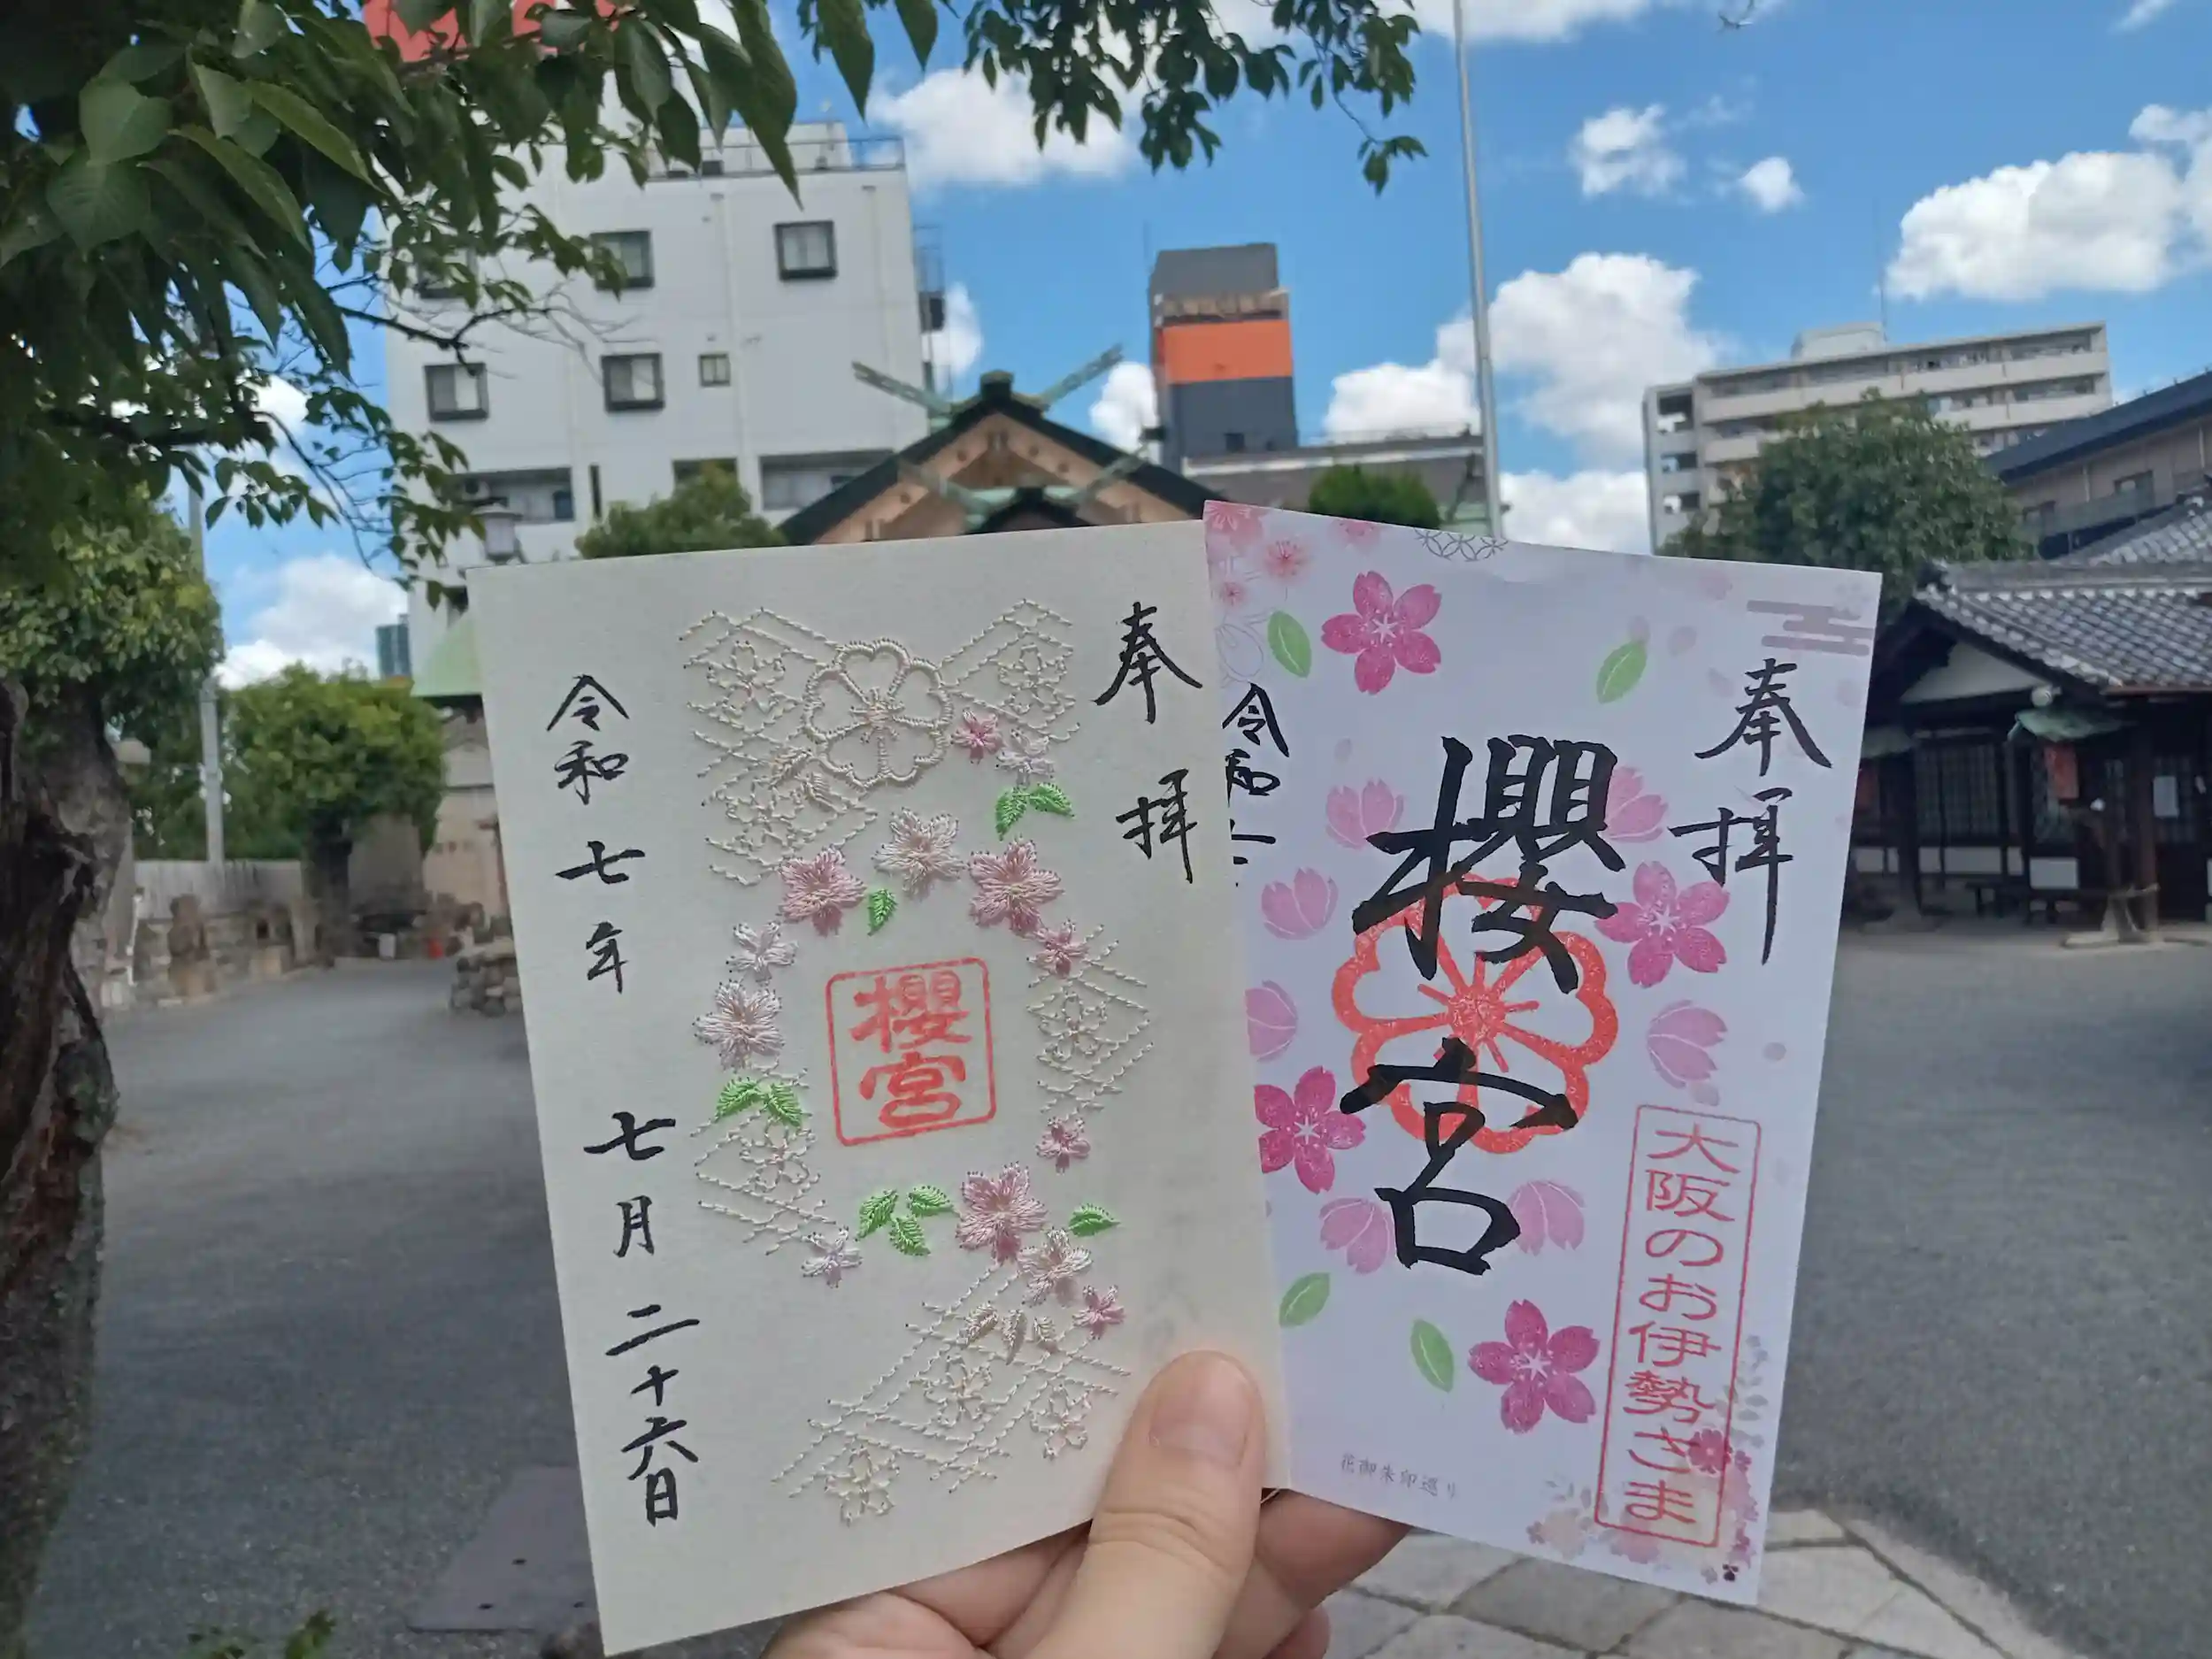 奉拝
櫻宮
令和七年
七月二十六日
奉拝
櫻宮
大阪のお伊勢さま
令和
花御朱印巡り